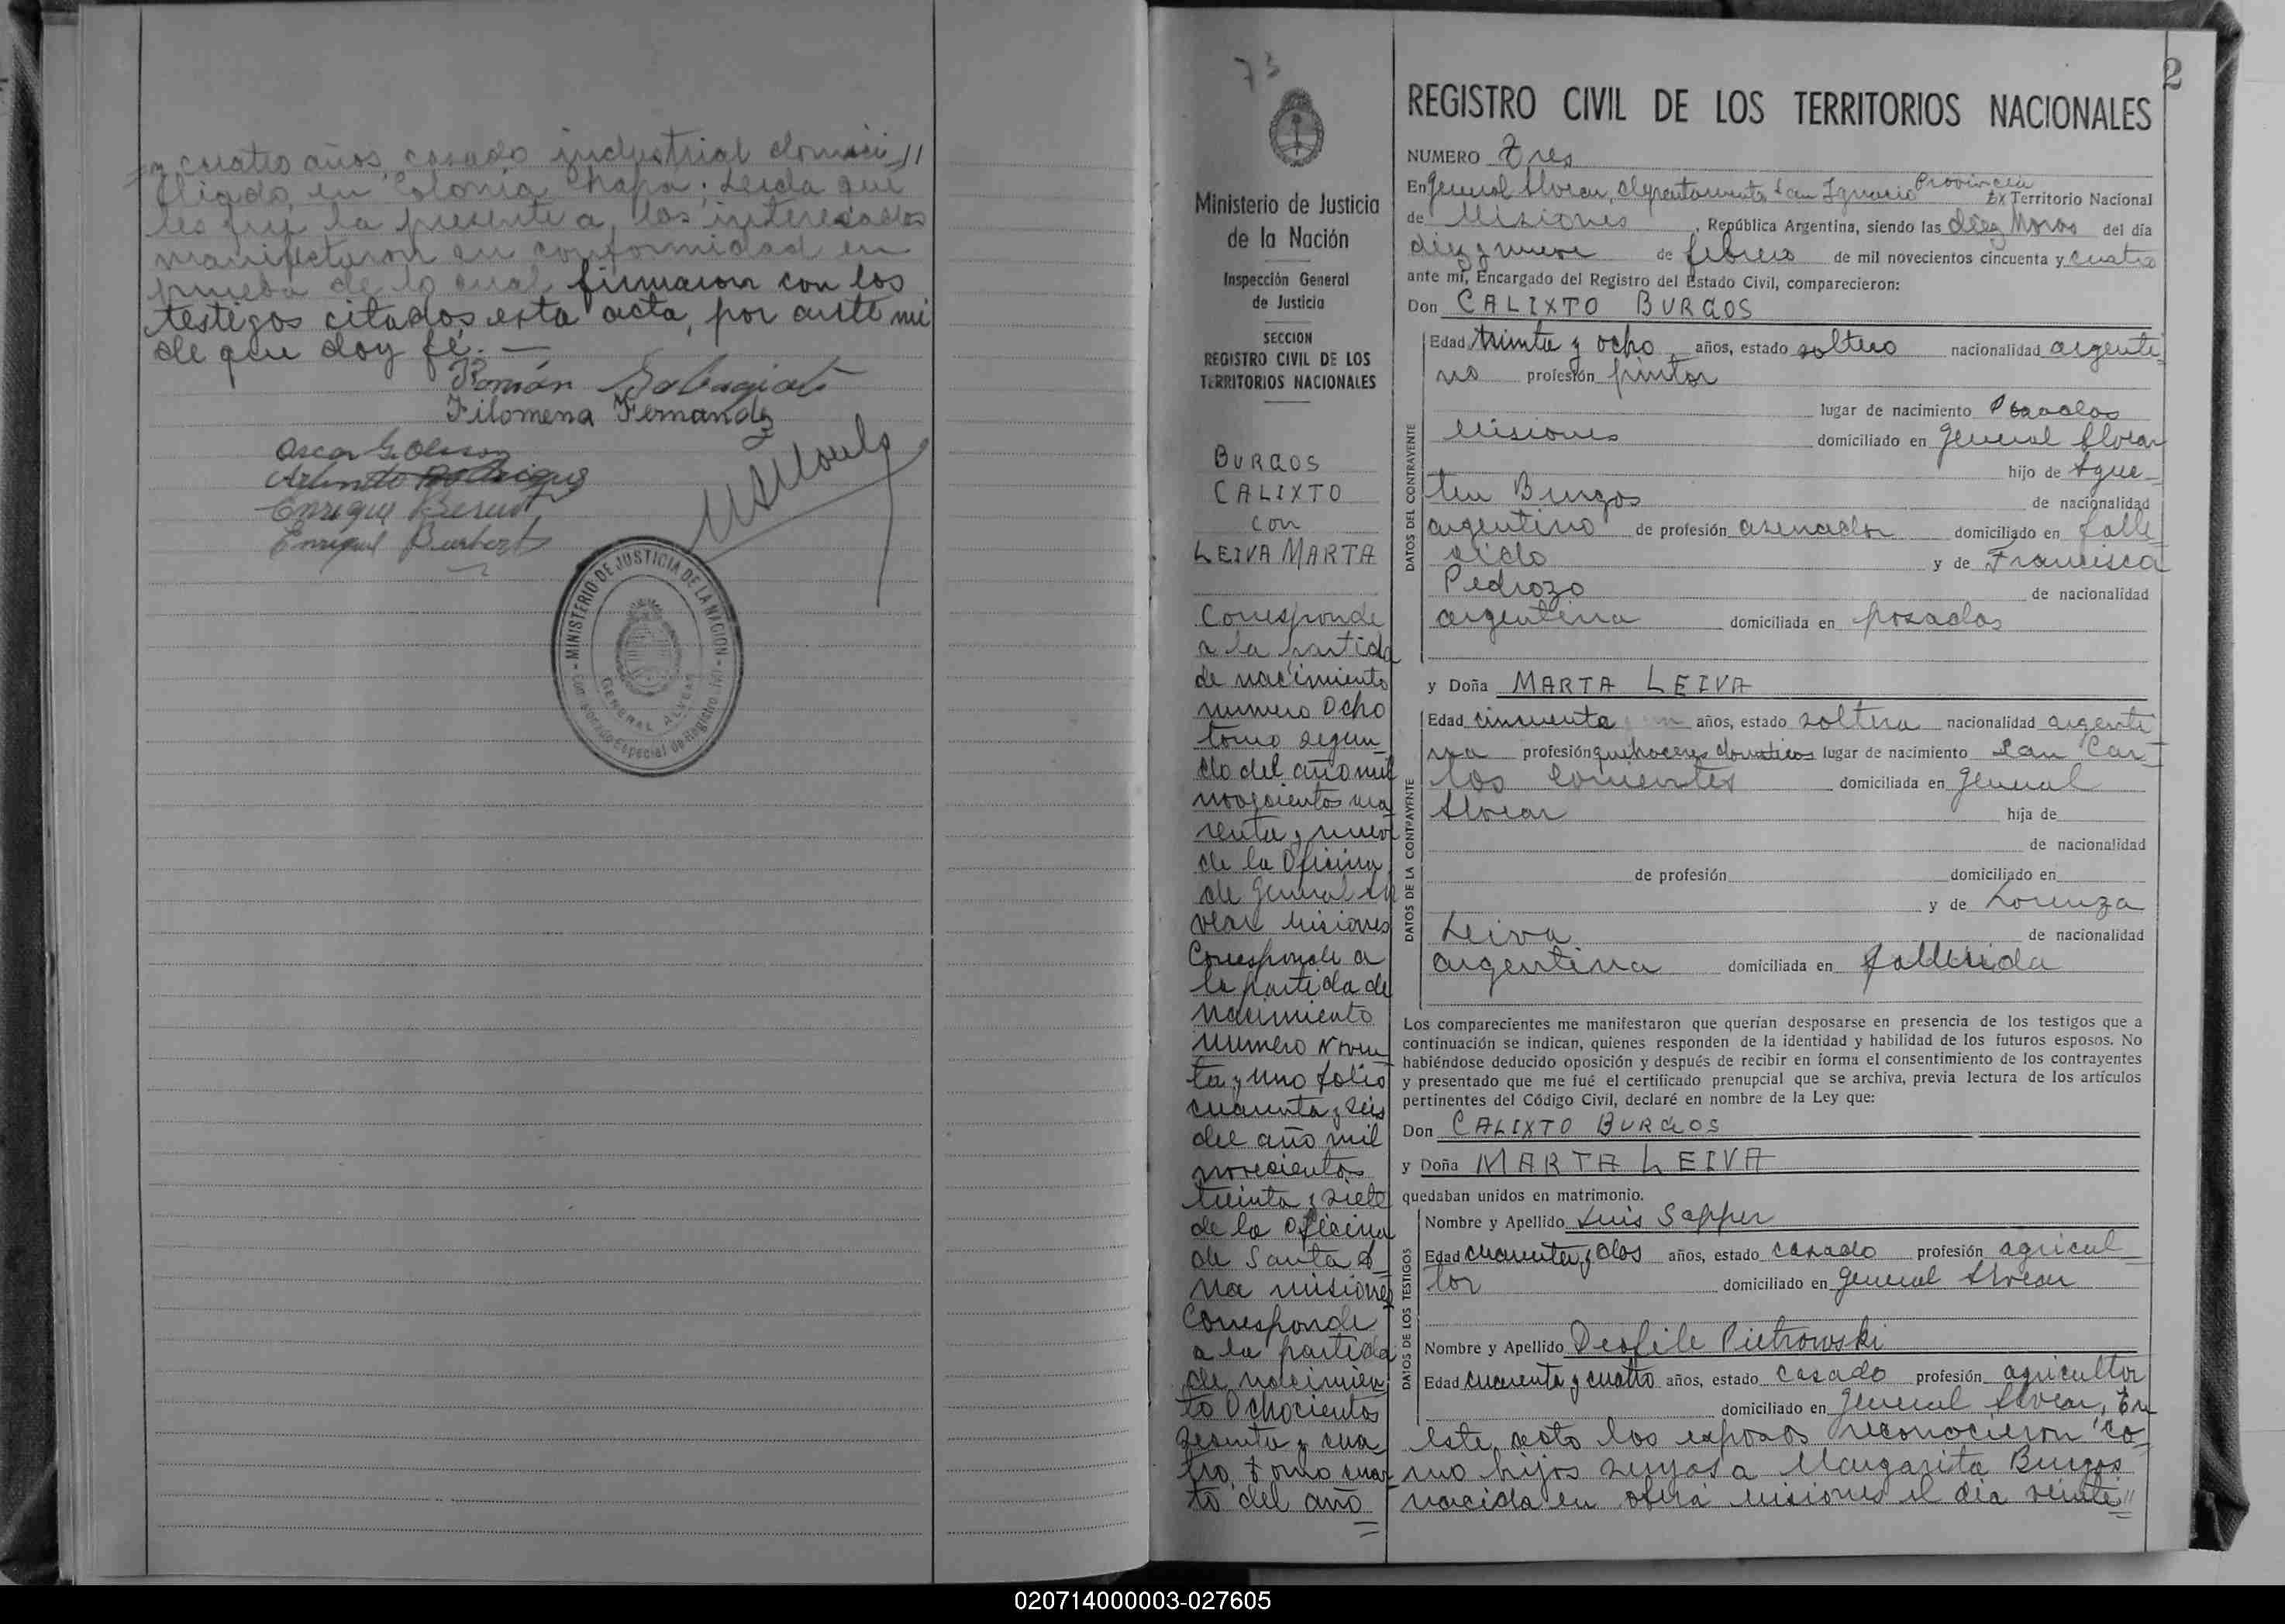 y cuatro años, casado industrial domici//
lliado en Colonia Chapá; Leida que
les fué la presente a los interesados
manifestaron su conformidad en
prueba de lo cual firmaron con los
testigos citados esta acta, por ante mi
de que doy fé.—
Román
Filomena Fernandez
Oscar G. Olsson
Enrique
Enrique
MINISTERIO DE JUSTICIA DE LA NACION
GENERAL ALVEAR
Especial de Registro Civil
73
2
Ministerio de Justicia
de la Nación
Inspección General
de Justicia
SECCION
REGISTRO CIVIL DE LOS
TERRITORIOS NACIONALES
BURGOS
CALIXTO
con
LEIVA MARTA
Corresponde
a la partida
de nacimiento
numero Ocho
tomo segun_
do del año mil
novecientos cua
renta y nueve
de la Oficina
de General Al
vear Misiones
Corresponde a
la partida de
nacimiento
numero Noven
ta y uno folio
cuarenta y seis
del año mil
novecientos
treinta y siete
de la oficina
de Santa A_
na misiones
Corresponde
a la partida
de nacimien
to Ochocientos
sesenta y cua
tro, tomo cuar
to del año
REGISTRO CIVIL DE LOS TERRITORIOS NACIONALES
NUMERO Tres
En General Alvear, departamento San Ignacio Provincia Ex Territorio Nacional
de Misiones, República Argentina, siendo las diez horas del día
diez y nueve de febrero de mil novecientos cincuenta y cuatro
ante mí, Encargado del Registro del Estado Civil, comparecieron:
Don CALIXTO BURGOS
DATOS DEL CONTRAYENTE
Edad treinta y ocho años, estado soltero nacionalidad argenti_
no profesión pintor
lugar de nacimiento Posadas
Misiones domiciliado en General Alvear
hijo de Agus_
tin Burgos de nacionalidad
argentino de profesión domiciliado en falle
cido y de Francisca
Pedrozo de nacionalidad
argentina domiciliada en posadas
y Doña MARTA LEIVA
DATOS DE LA CONTRAYENTE
Edad cincuenta años, estado soltera nacionalidad argenti
na profesión quehaceres domesticos lugar de nacimiento San Car_
los Corrientes domiciliada en General
Alvear hija de
de nacionalidad
de profesión domiciliado en
y de Lorenza
Leiva de nacionalidad
argentina domiciliada en fallecida
Los comparecientes me manifestaron que querían desposarse en presencia de los testigos que a
continuación se indican, quienes responden de la identidad y habilidad de los futuros esposos. No
habiéndose deducido oposición y después de recibir en forma el consentimiento de los contrayentes
y presentado que me fué el certificado prenupcial que se archiva, previa lectura de los artículos
pertinentes del Código Civil, declaré en nombre de la Ley que:
Don CALIXTO BURGOS
y Doña MARTA LEIVA
quedaban unidos en matrimonio.
DATOS DE LOS TESTIGOS
Nombre y Apellido Luis Sapper
Edad cuarenta y dos años, estado casado profesión agricul_
tor domiciliado en General Alvear
Nombre y Apellido Deofile Pietrowski
Edad cuarenta y cuatro años, estado casado profesión agricultor
domiciliado en General Alvear, En
este acto los esposos reconocieron co_
mo hijos suyos a Margarita Burgos
nacida en oberá misiones el dia veinte//
020714000003-027605